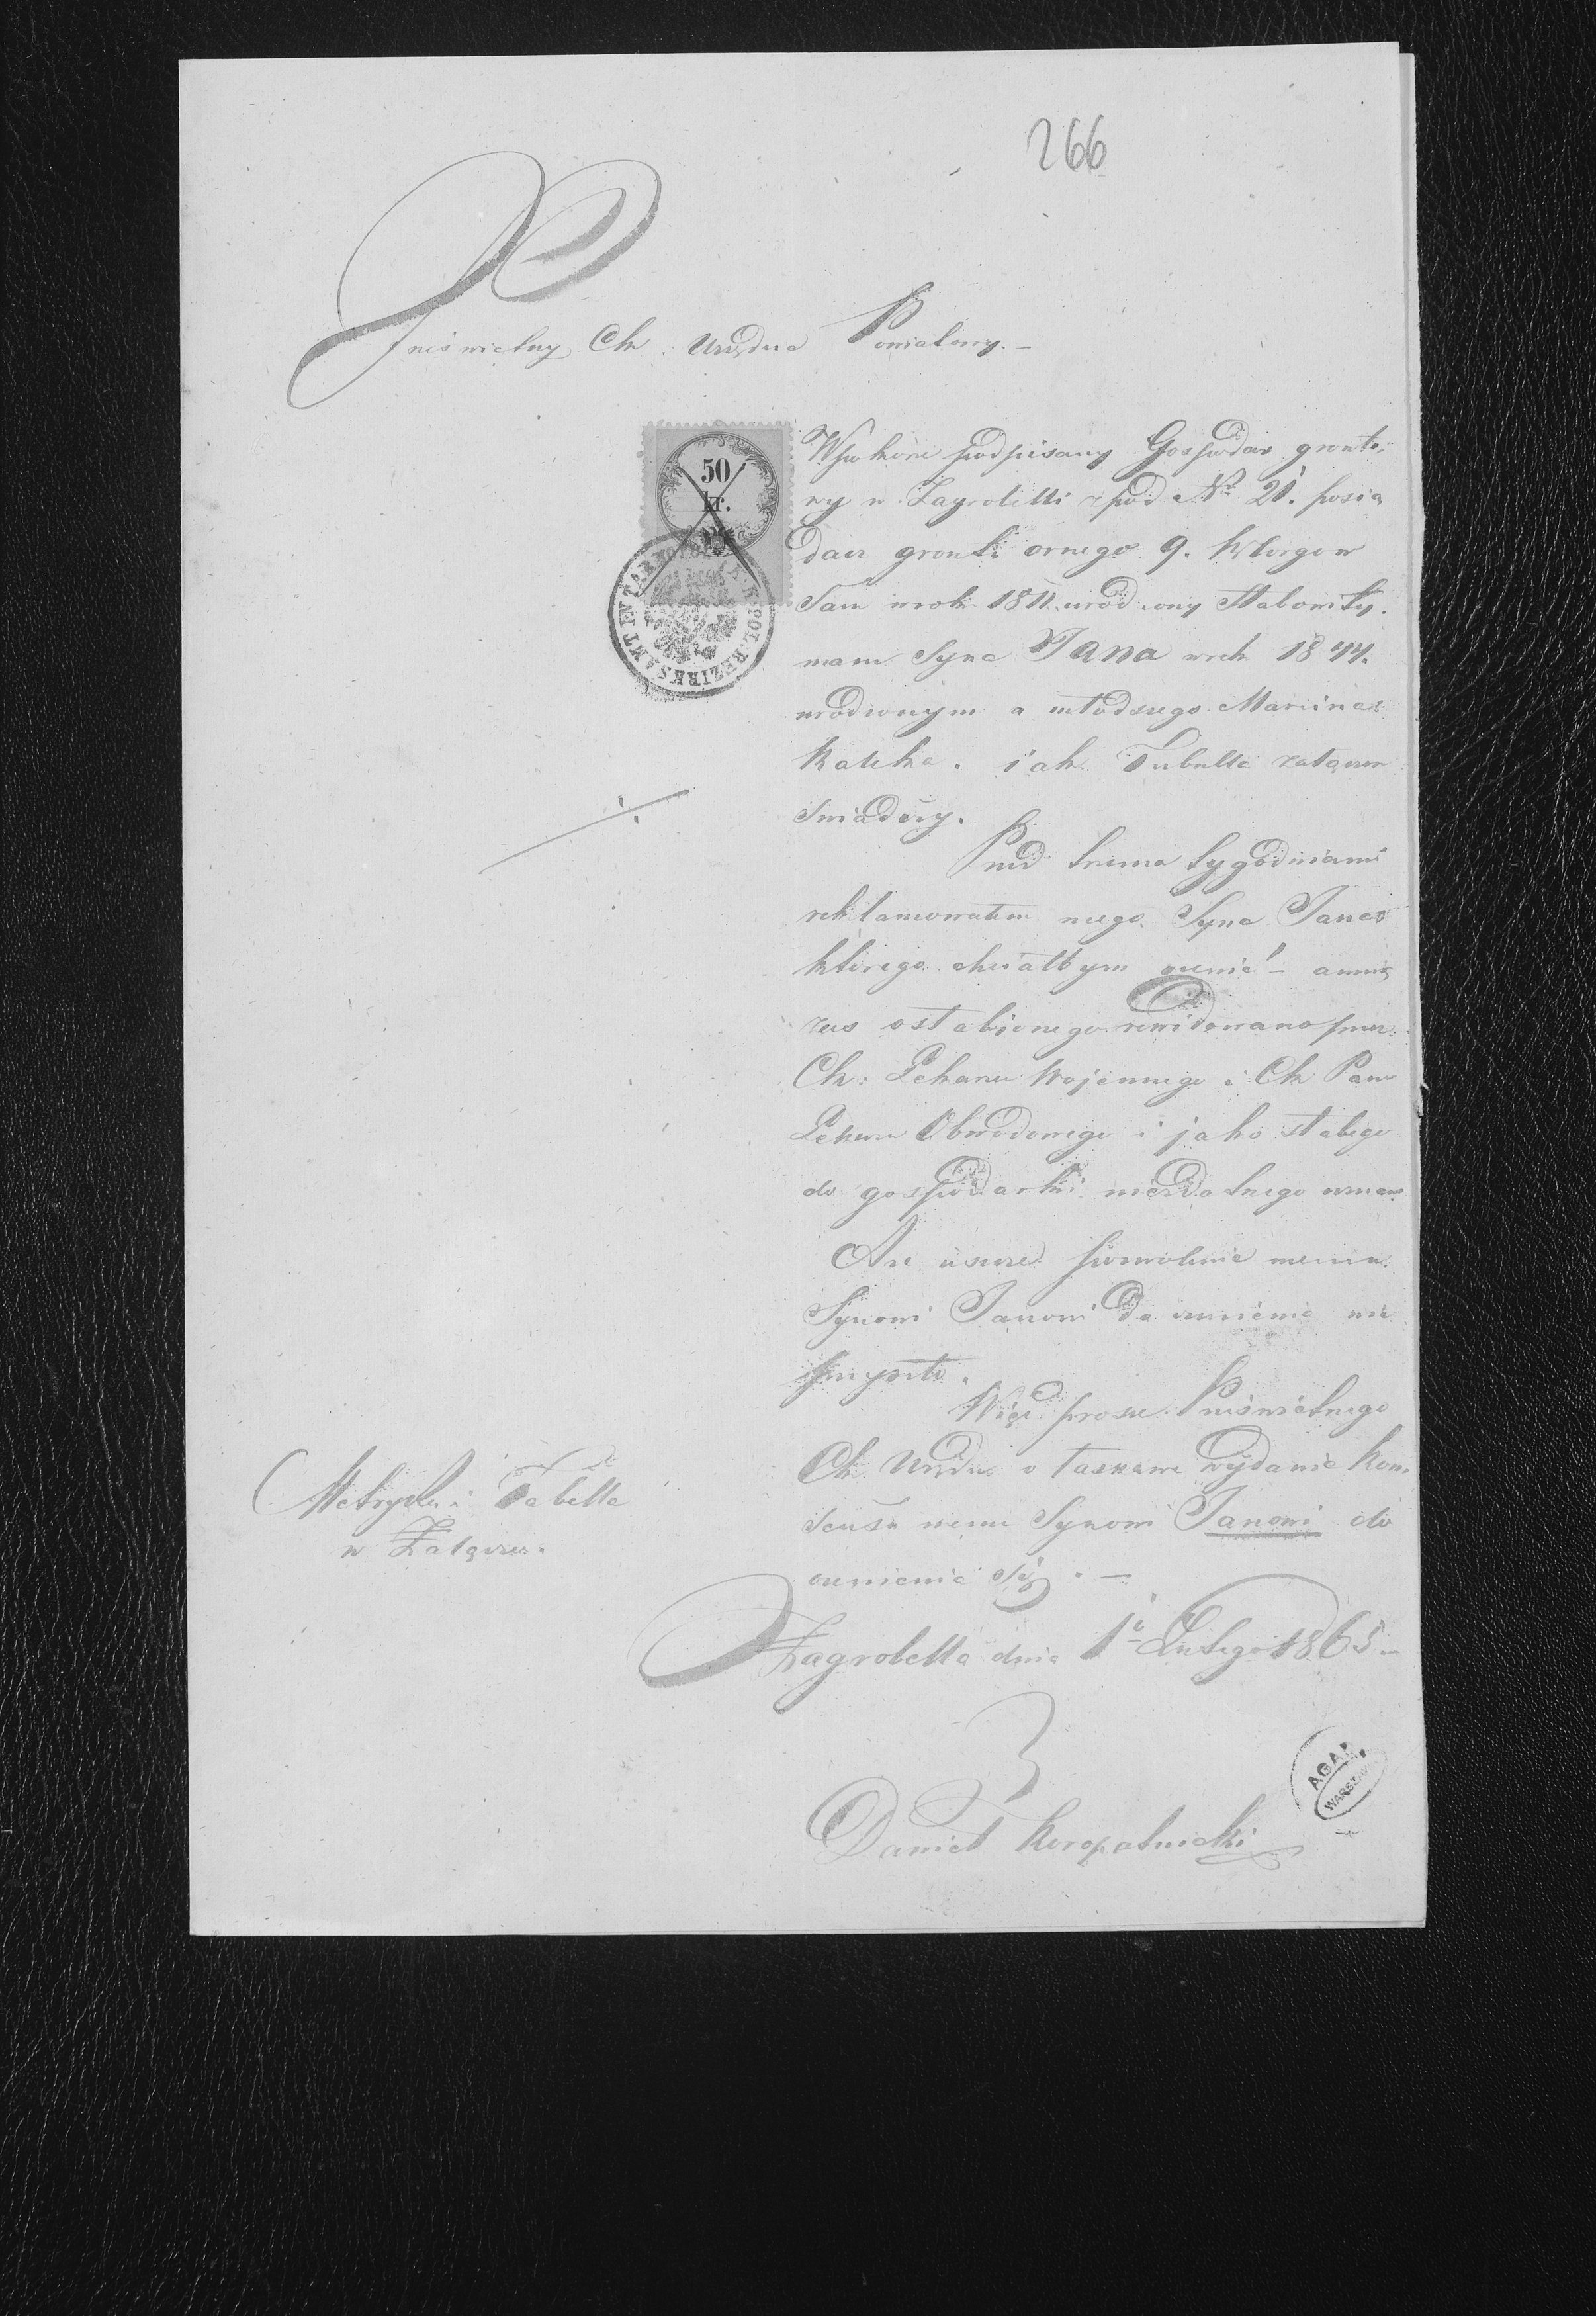 266
Prześwietny Ck. Urzędzie Powiatowy. —
50
kr.
K. K. POL. BEZIRKSAMT IN TARNOPOL
W pokorze podpisany Gospodarz gronto
wy w Zagrobelli zpod Nr 21. posia
dacz grontu ornego 9.
Sam wrok 1811. urodzony Słabowity.
mam Syna Jana wrok 1844.
urodzonym a młodszego Marcina
kalika. jak Tabella załączon
świadczy.
Przed trzema tygodniami
reklamowałem mego Syna Jana
którego chciałbym ożenić —
zas osłabionego rewidowano przez
Ck: Lekarza Wojennego i Ck Pana
Lekarza Obwodowego i jako słabego
do gospodarki niezdatnego uznano
Aże ieszcze pozwolenie memu
Synowi Janowi do ożenienia nie
przyszło.
Więc proszę Prześwietnego
Ck Urzędu o łaskawe wydanie Kon
sensu memu Synowi Janowi do
ożenienia się. —
Metryka i Tabella
w Załączu.
Zagrobella dnia 1 Lutego 1865 —
Daniel Koropatnicki
AGAD
WARSZAWA